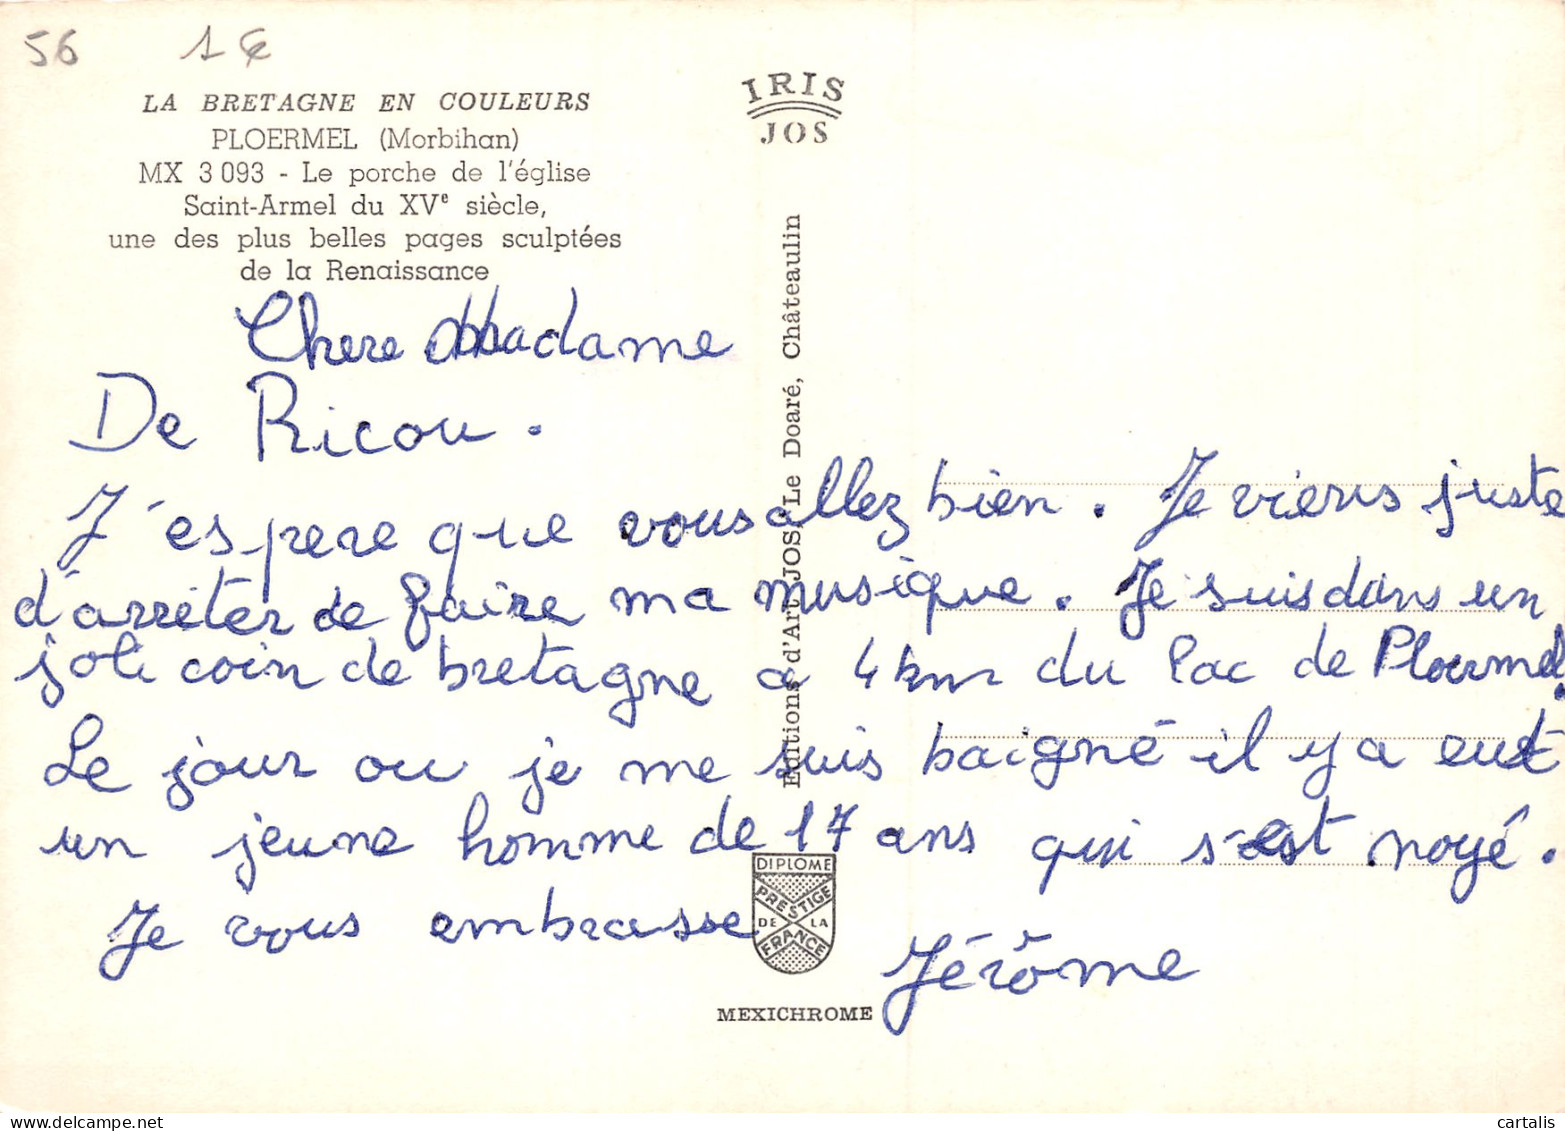 56 1 €
LA BRETAGNE EN COULEURS
PLOERMEL (Morbihan)
MX 3 093 - Le porche de l'église
Saint-Armel du XVe siècle,
une des plus belles pages sculptées
de la Renaissance
IRIS
JOS
Editions d'Art JOS Le Doaré, Châteaulin
Chere Madame
De Ricou.
J'espere que vous allez bien. Je viens juste
d'arrêter de faire ma musique. Je suis dans un
joli coin de bretagne a 4 km du lac de Ploermel.
Le jour ou je me suis baigné il y a eut
un jeune homme de 17 ans qui s'est noyé.
Je vous embrasse
Jérôme
DIPLOME
PRESTIGE
DE LA
FRANCE
MEXICHROME
cartalis